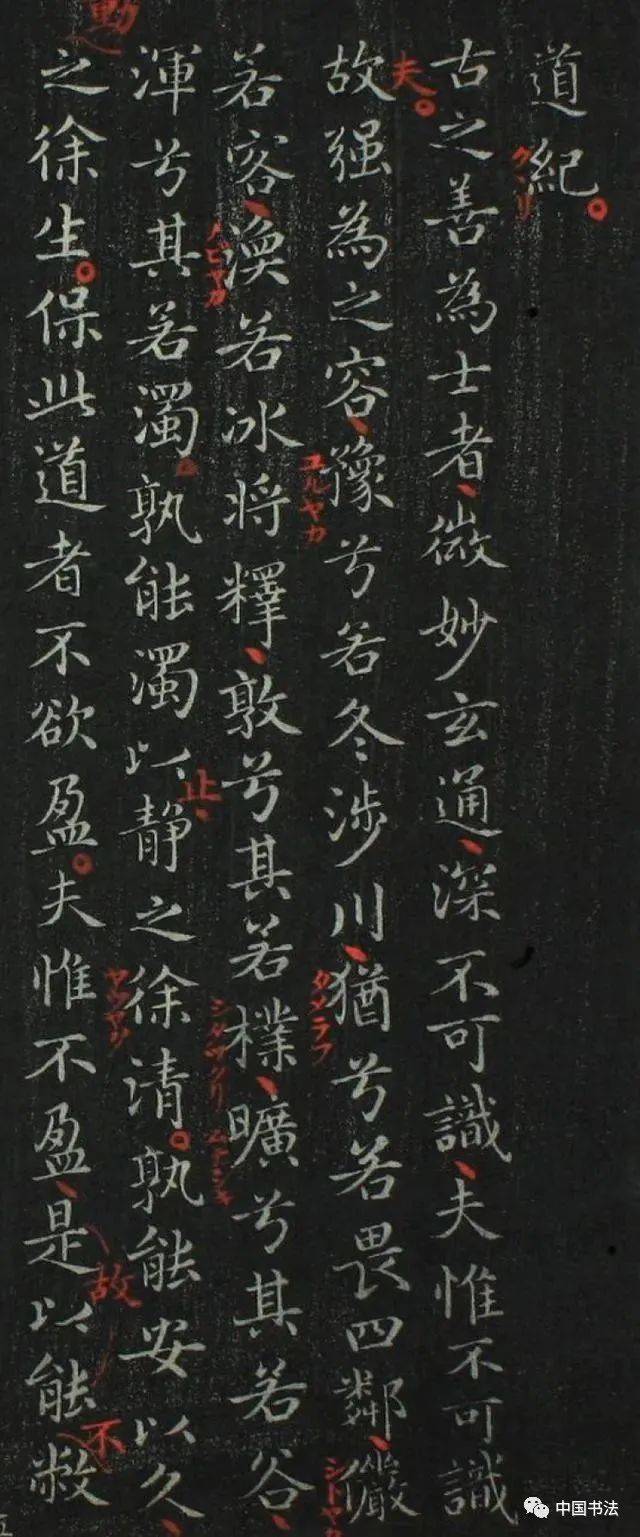 道紀。
古之善為士者、微妙玄通、深不可識、夫惟不可識
夫。
故强為之容、豫兮若冬涉川、猶兮若畏四鄰、儼
ユルヤカ
タメラフ
シトヤカ
若容、渙若冰將釋、敦兮其若樸、曠兮其若谷、
ノビヤカ
渾兮其若濁。孰能濁以靜之徐清。孰能安以久、
止、
動
之徐生。保此道者不欲盈。夫惟不盈、是以能敝
故
不
中国书法